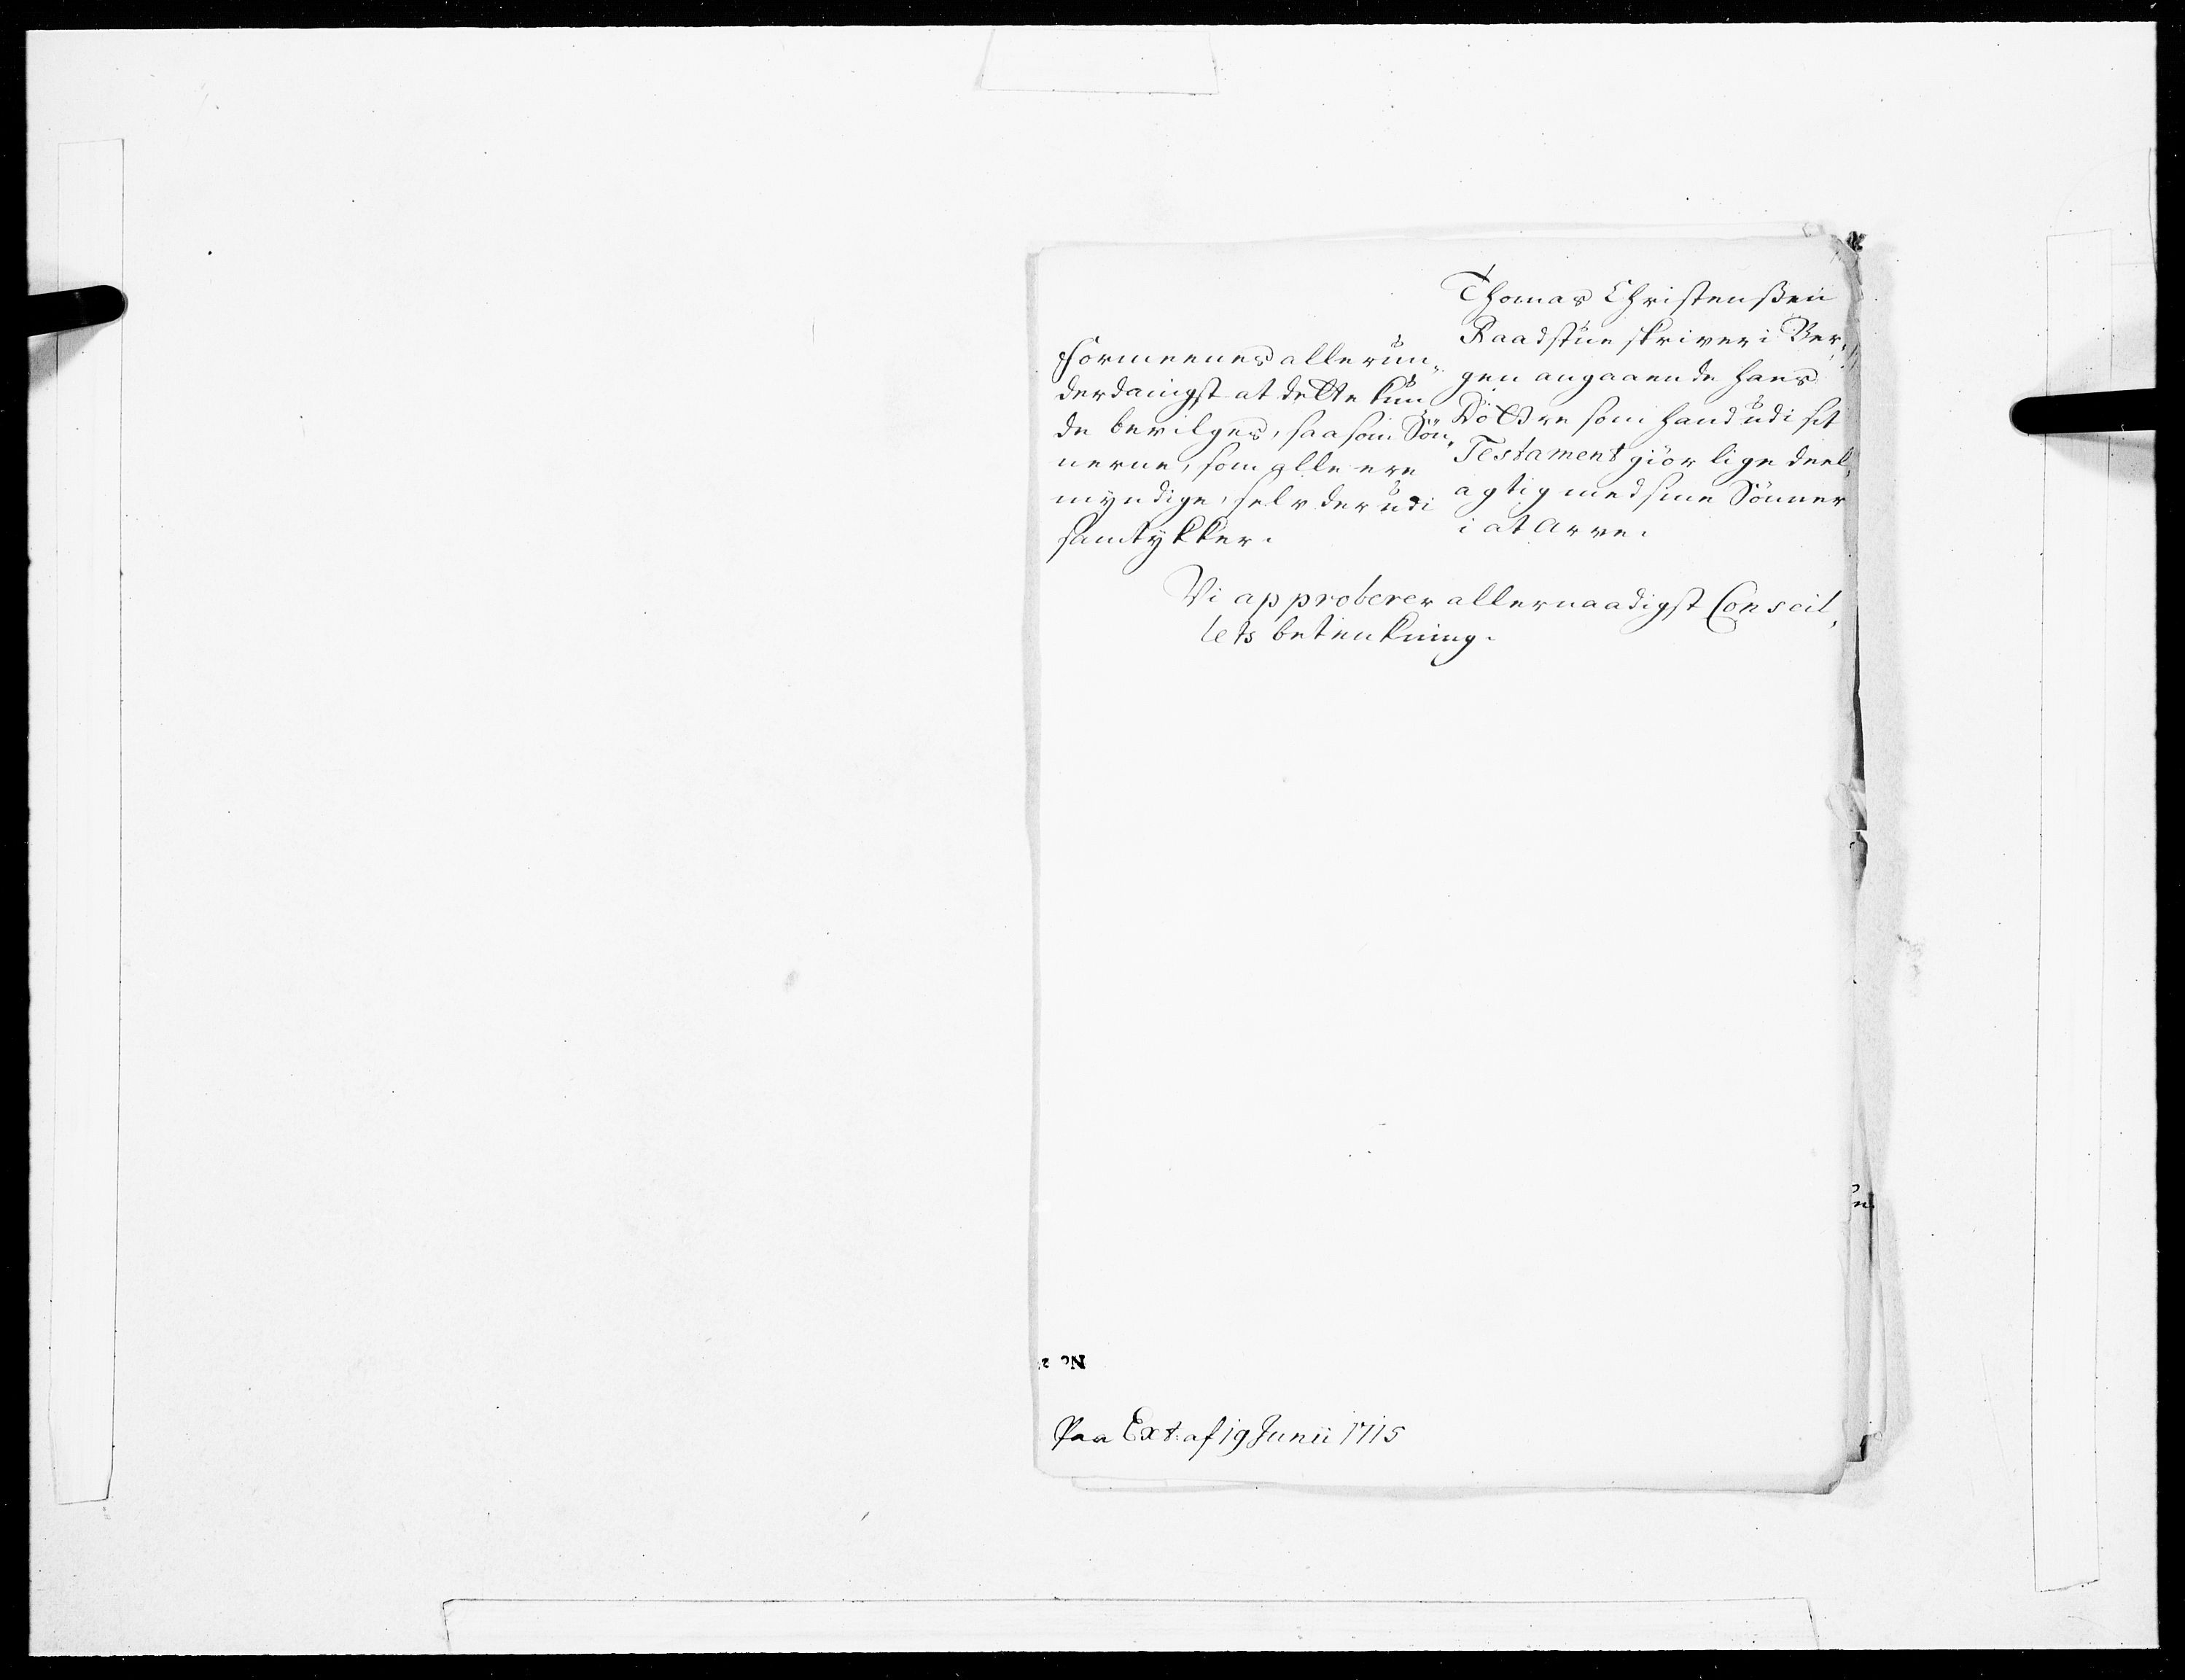 Thomas Christenßen
Raadstue skriver i Ber,
gen angaaende hans
Döttre som hand udi sit
Testament giör lige deel,
agtig med sine Sönner
i at arve.
Formeenes allerun,,
derdanigst at dette kun
de bevilges, saasom Sön,
nerne, som alle ere
myndige, selv der udi
samtykker.
Vi approberer allernaadigst Conseil,
lets betenkning.
No 2
Paa Ext: af 19 Junii 1715